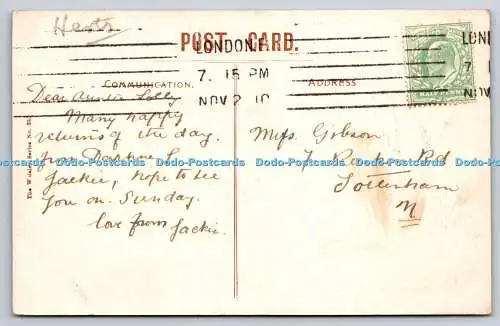 Herts
POST CARD.
LONDON. F.
7. 15 PM
NOV 2 10
LON
7
NOV
COMMUNICATION.
ADDRESS
Dear Auntie Lolly
Many happy
returns of the day.
from Daphne &
Jackie, hope to see
you on Sunday.
love from Jackie.
Miss Gibson
7 Rd
Tottenham
N
The Series No.
Dodo-Postcards Dodo-Postcards Dodo-Postcards Dodo-Postcards Dodo-Postcards